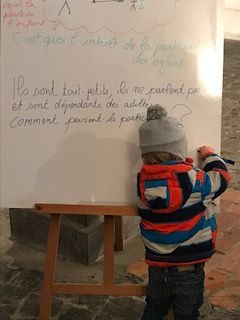 C'est quoi l'intérêt de la participat
des enfants
Ils sont tout-petits, ils ne parlent pas
et sont dépendants des adultes
Comment peuvent-ils partic ?